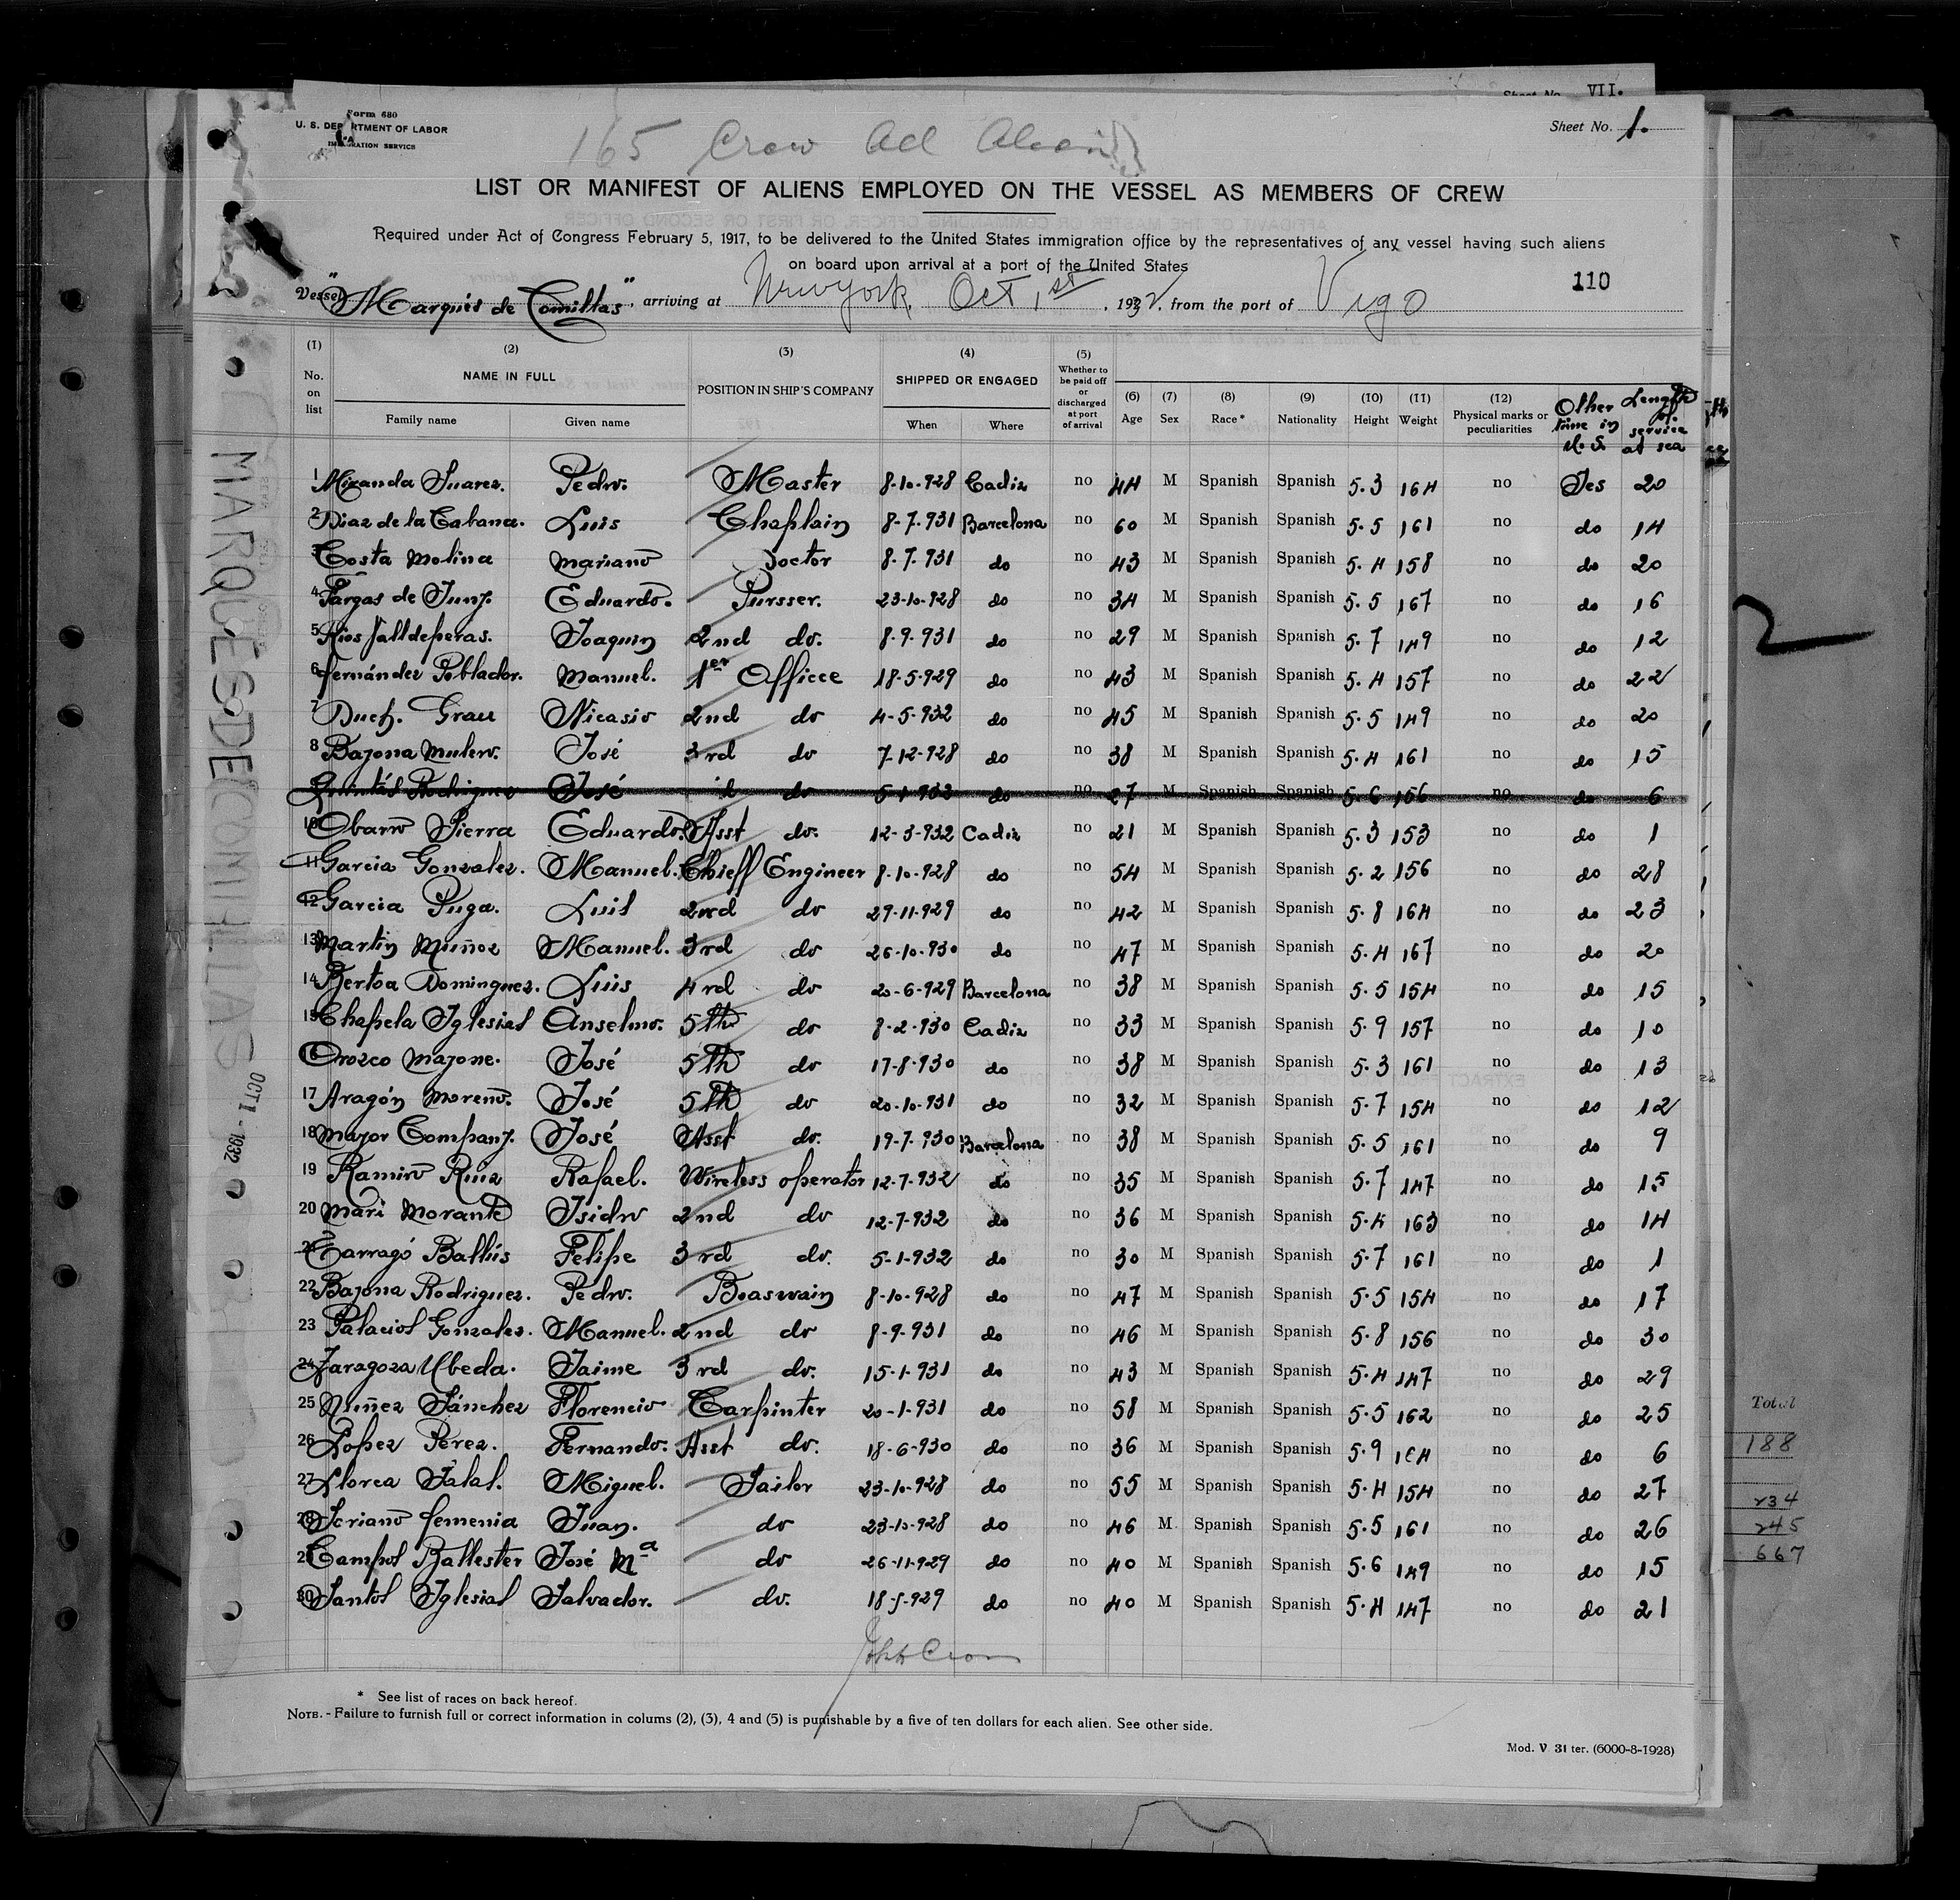 VII.
Form 680
U. S. DEPARTMENT OF LABOR
IMMIGRATION SERVICE
Sheet No. 1.
165 Crew All
LIST OR MANIFEST OF ALIENS EMPLOYED ON THE VESSEL AS MEMBERS OF CREW
Required under Act of Congress February 5, 1917, to be delivered to the United States immigration office by the representatives of any vessel having such aliens
on board upon arrival at a port of the United States
110
Vessel "Marqués de Comillas", arriving at New York, Oct 1st, 1932, from the port of Vigo
(1) No. on list (2) NAME IN FULL Family name Given name (3) POSITION IN SHIP'S COMPANY (4) SHIPPED OR ENGAGED When Where (5) Whether to be paid off or discharged at port of arrival (6) Age (7) Sex (8) Race* (9) Nationality (10) Height (11) Weight (12) Physical marks or peculiarities Other time in U. S. Length of service at sea
1 Miranda Suarez. Pedro. Master 8-10-928 Cadiz no 44 M Spanish Spanish 5.3 164 no Yes 20
2 Diaz de la Cabana. Luis Chaplain 8-7-931 Barcelona no 60 M Spanish Spanish 5.5 161 no do 14
3 Costa Molina Mariano Doctor 8-7-931 do no 43 M Spanish Spanish 5.4 158 no do 20
4 Fargas de Juny. Eduardo. Pursser. 23-10-928 do no 34 M Spanish Spanish 5.5 167 no do 16
5 Rios Valldeperas. Joaquin 2nd do. 8-9-931 do no 29 M Spanish Spanish 5.7 149 no do 12
6 Fernández Poblador. Manuel. 1er Officce 18-5-929 do no 43 M Spanish Spanish 5.4 157 no do 22
7 Duch. Grau Nicasio 2nd do 4-5-932 do no 45 M Spanish Spanish 5.5 149 no do 20
8 Bayona Mulero. José 3rd do 7-12-928 do no 38 M Spanish Spanish 5.4 161 no do 15
Quintás Rodriguez José do 5-1-933 do no 27 M Spanish Spanish 5.6 156 no do 6
10 Obarro Sierra Eduardo. Asst do. 12-3-932 Cadiz no 21 M Spanish Spanish 5.3 153 no do 1
11 Garcia Gonzalez. Manuel. Chieff Engineer 8-10-928 do no 54 M Spanish Spanish 5.2 156 no do 28
12 Garcia Puga. Luis 2nd do 29-11-929 do no 42 M Spanish Spanish 5.8 164 no do 23
13 Martin Muñoz Manuel. 3rd do 26-10-930 do no 47 M Spanish Spanish 5.4 167 no do 20
14 Bertoa Dominguez. Luis 4rd do 20-6-929 Barcelona no 38 M Spanish Spanish 5.5 154 no do 15
15 Chapela Iglesias Anselmo. 5th do 8-2-930 Cadiz no 33 M Spanish Spanish 5.9 157 no do 10
16 Orozco Mayone. José 5th do 17-8-930 do no 38 M Spanish Spanish 5.3 161 no do 13
17 Aragón Moreno. José 5th do 20-10-931 do no 32 M Spanish Spanish 5.7 154 no do 12
18 Mayor Company. José Asst do. 19-7-930 Barcelona no 38 M Spanish Spanish 5.5 161 no do 9
19 Ramiro Ruiz Rafael. Wireless operator 12-7-932 do no 35 M Spanish Spanish 5.7 147 no do 15
20 Mari Morante Isidro 2nd do 12-7-932 do no 36 M Spanish Spanish 5.4 163 no do 14
21 Tarragó Ballús Felipe 3rd do. 5-1-932 do no 30 M Spanish Spanish 5.7 161 no do 1
22 Bayona Rodriguez. Pedro. Boaswain 8-10-928 do no 47 M Spanish Spanish 5.5 154 no do 17
23 Palacios Gonzalez. Manuel. 2nd do 8-9-931 do no 46 M Spanish Spanish 5.8 156 no do 30
24 Zaragoza Ubeda. Jaime 3rd do. 15-1-931 do no 43 M Spanish Spanish 5.4 147 no do 29
25 Nuñez Sánchez Florencio Carpinter 20-1-931 do no 58 M Spanish Spanish 5.5 162 no do 25
26 Lopez Perez. Fernando. Asst do. 18-6-930 do no 36 M Spanish Spanish 5.9 164 no do 6
27 Llorca Salas. Miguel. Sailor 23-10-928 do no 55 M Spanish Spanish 5.4 154 no do 27
28 Soriano Femenia Juan. do 23-10-928 do no 46 M Spanish Spanish 5.5 161 no do 26
29 Campos Ballester José Mª do 26-11-929 do no 40 M Spanish Spanish 5.6 149 no do 15
30 Santos Iglesias Salvador. do. 18-5-929 do no 40 M Spanish Spanish 5.4 147 no do 21
* See list of races on back hereof.
NOTE. - Failure to furnish full or correct information in colums (2), (3), 4 and (5) is punishable by a five of ten dollars for each alien. See other side.
Mod. V 31 ter. (6000-8-1928)
MARQUES DE COMILLAS OCT 1 - 1932
Total
188
234
245
667